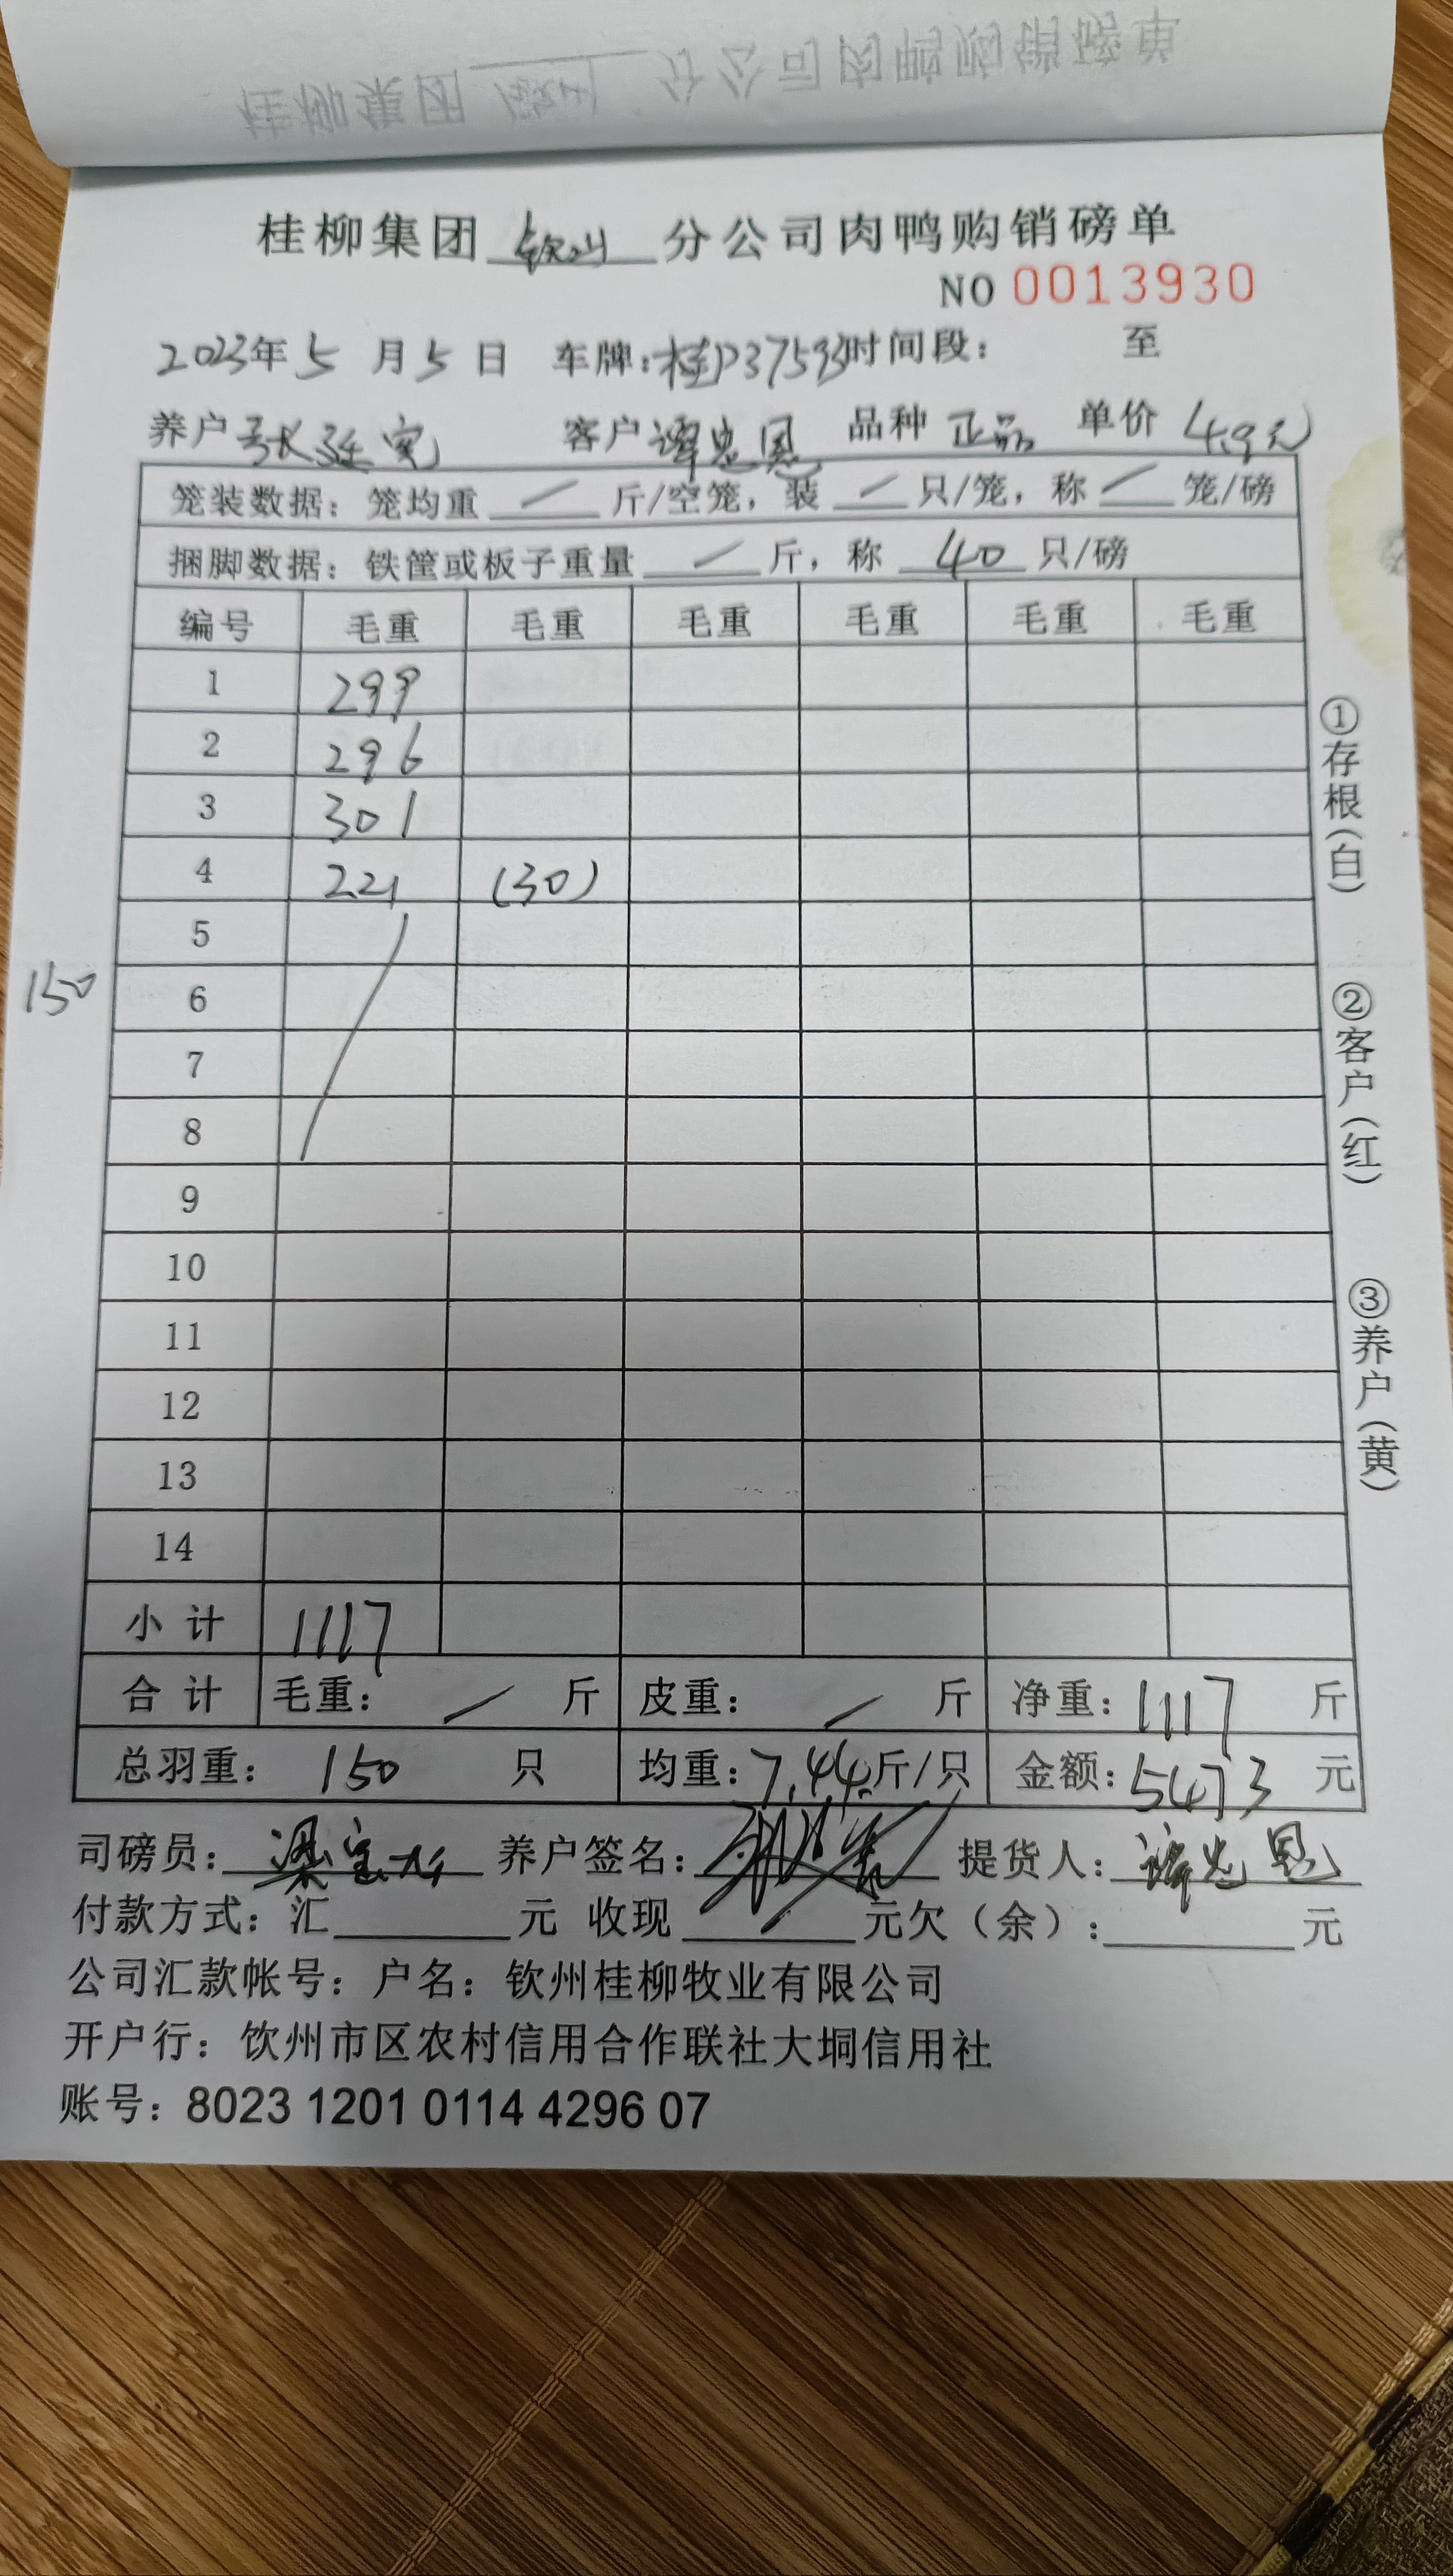 桂柳集团 钦州 分公司肉鸭购销磅单
NO 0013930
2023年5月5日 车牌:桂P37593 时间段: 至
养户 张廷宪 客户 谭忠恩 品种 正品 单价 4.9元
笼装数据: 笼均重 / 斤/空笼, 装 / 只/笼, 称 / 笼/磅
捆脚数据: 铁筐或板子重量 / 斤, 称 40 只/磅
编号 毛重 毛重 毛重 毛重 毛重 毛重
1 299
2 296
3 301
4 221 (30)
5
150
6
7
8
9
10
11
12
13
14
小计 1117
合计 毛重: / 斤 皮重: / 斤 净重: 1117 斤
总羽重: 150 只 均重: 7.44 斤/只 金额: 5473 元
司磅员: 养户签名: 提货人: 谭忠恩
付款方式: 汇 元 收现 元欠(余): 元
公司汇款帐号: 户名: 钦州桂柳牧业有限公司
开户行: 钦州市区农村信用合作联社大垌信用社
账号: 8023 1201 0114 4296 07
①存根(白)
②客户(红)
③养户(黄)